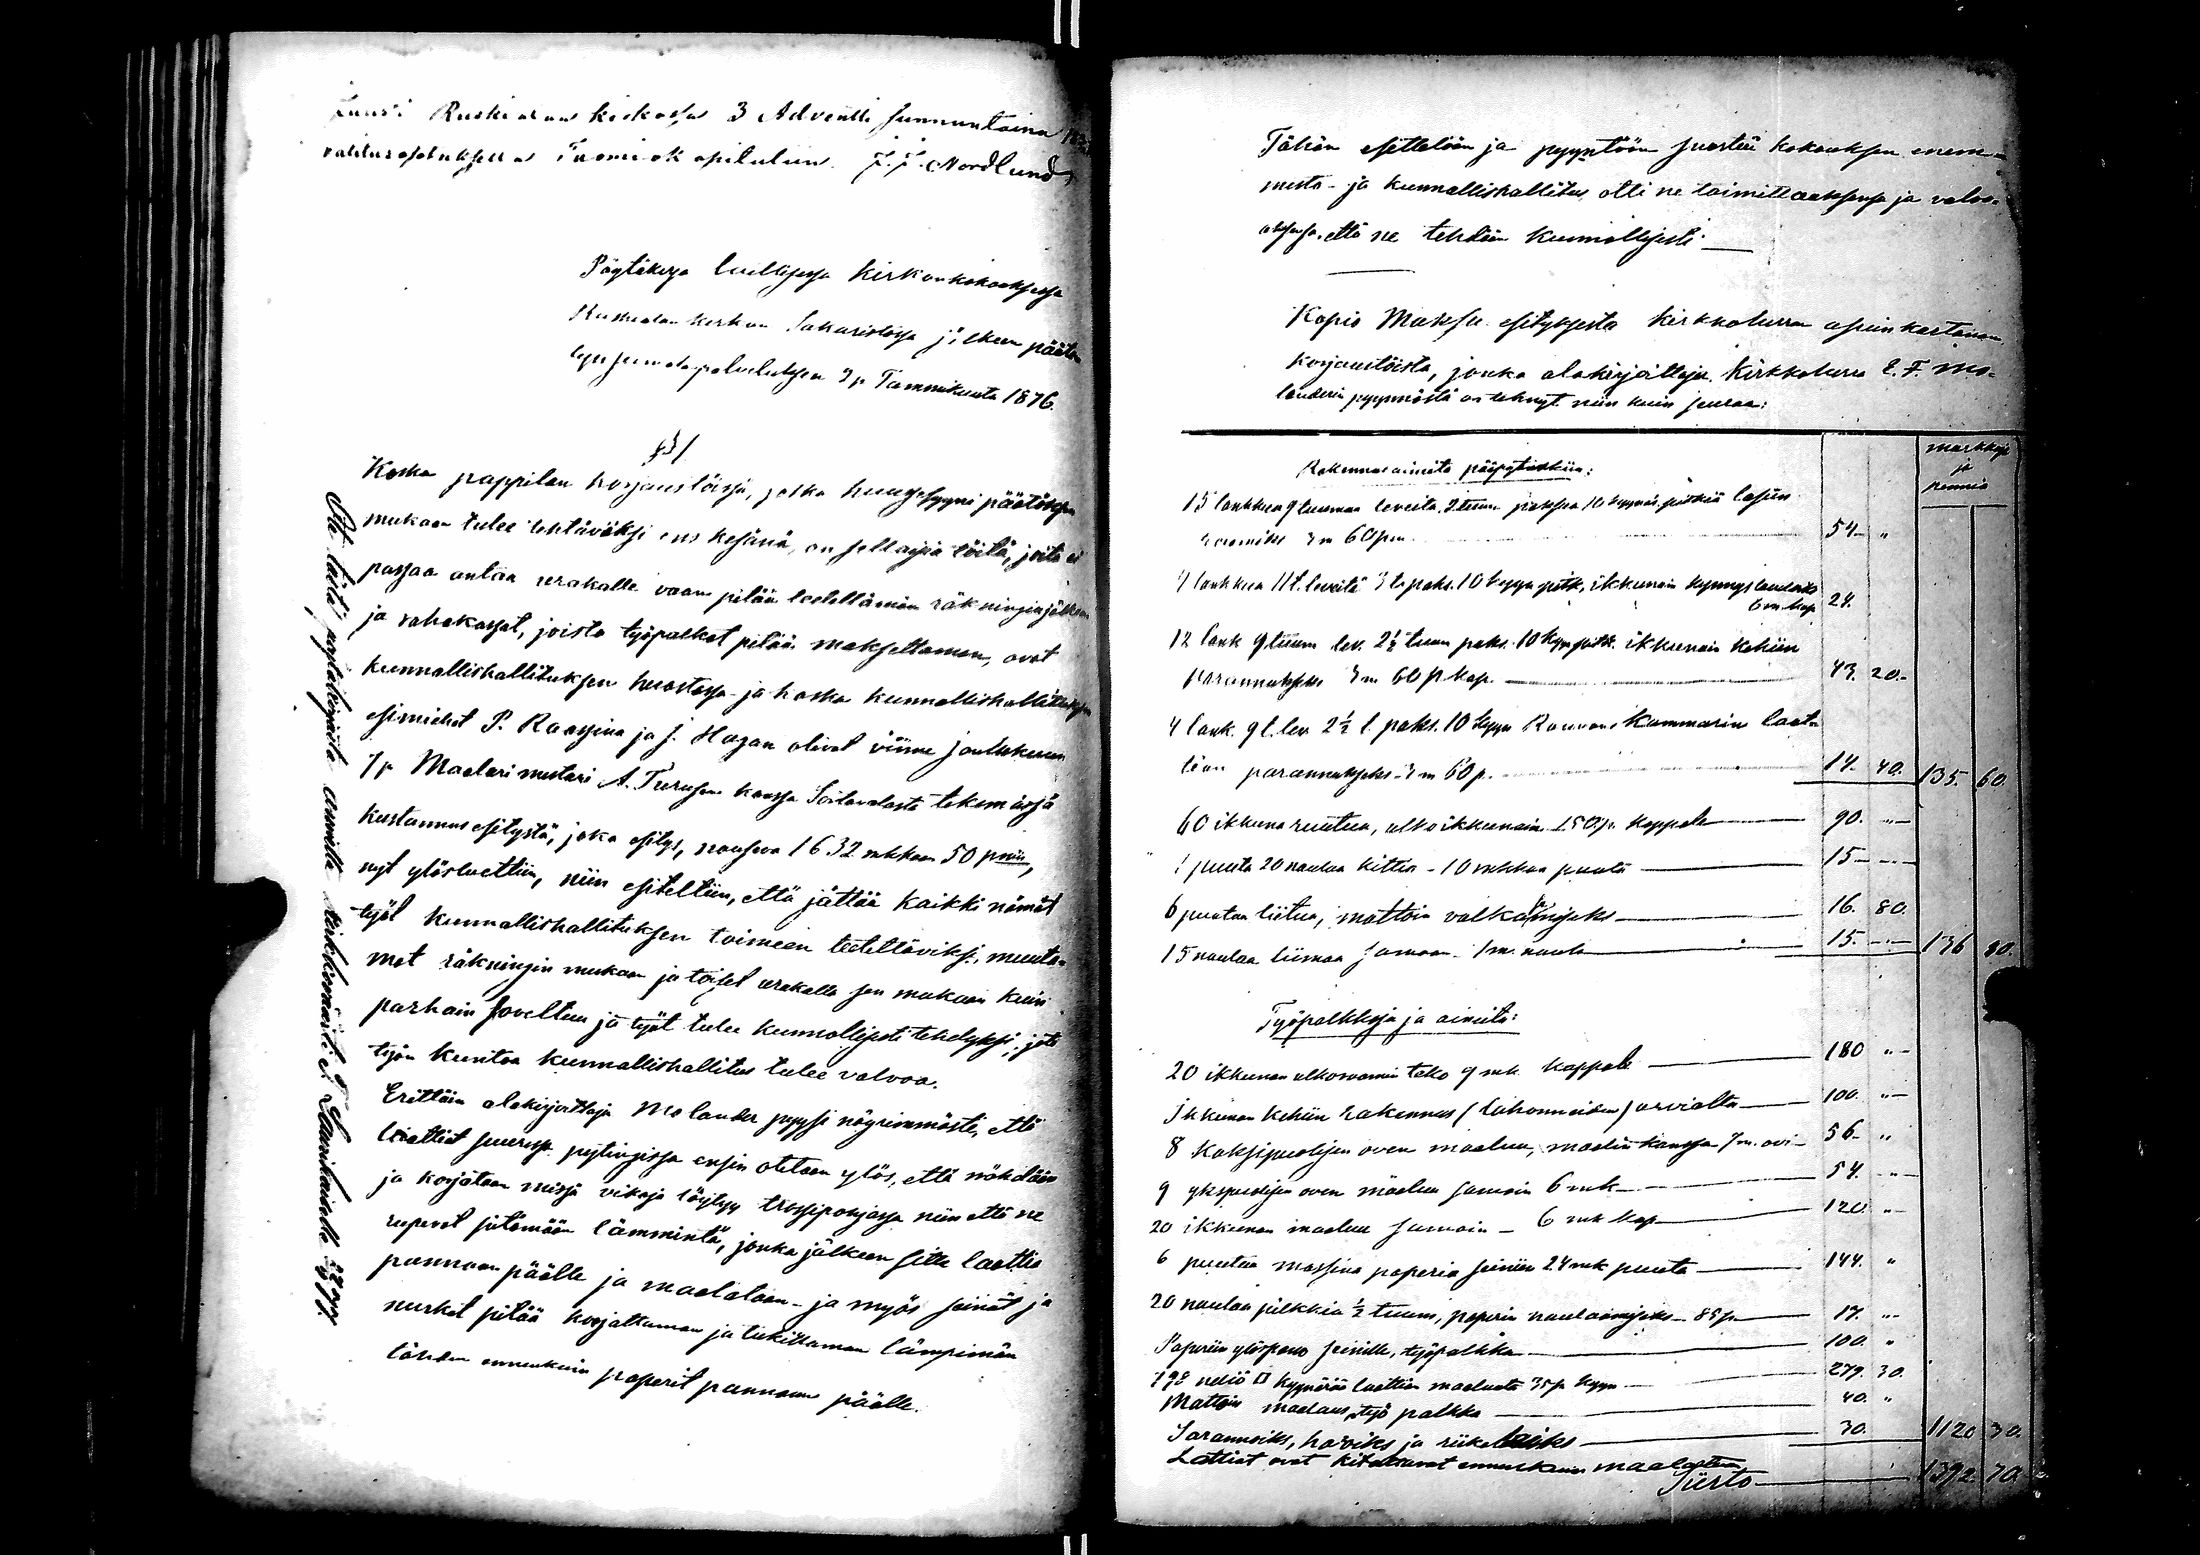 Luusi Ruskialan kirkossa 3 Adventti sunnuntaina
valitusosotuksella Tuomiok apituliin. J.J. Nordlund
Pöytäkirja laillisessa Kirkonkokouksessa
Ruskealan kirkon Sakaristossa jälkeen päätetyn
Jumalanpalveluksen 9 p Tammikuuta 1876.
§ 1
Koska pappilan korjaustöissä, jotka huugesyyni päätöksen
mukaan tulee tehtäväksi ens kesänä, on sellaisia töitä, joita ei
passaa antaa urakalle vaan pitää teetettämän räkningin jälkeen
ja rahakassat, joista työpalkat pitää maksettaman, ovat
kunnallishallituksen huostassa - ja koska kunnallishallituksen
esimiehet P. Raassina ja J. Hagan olivat viime joulukuun
7 p Maalarimestari A. Turusen kanssa Soitavalasta tekemässä
kustannus esitystä, joka esitys, nouseva 1632 mkkaan 50 pniin,
nyt ylösluettiin, niin esiteltiin, että jättää kaikki nämät
työt kunnallishallituksen toimeen teetettäviksi, muuta-
mat räkningin mukaan ja toiset urakalla sen mukaan kuin
parhain soveltuu ja työt tulee kunnollisesti tehdyksi, jota
työn kuntoa kunnallishallitus tulee valvoa.
Erittäin alakirjoittaja Molander pyysi nöyrimmästi, että
laattiat suuressa pytingissä ensin otetaan ylös, että nähdään
ja korjataan missä vikoja löytyy trossipohjassa niin että ne
rupeevat pitämään lämmintä, jonka jälkeen sitte laattia
pannaan päälle ja maalataan - ja myös seinät ja
nurkat pitää korjattaman ja tukittaman lämpimän
tähden ennenkuin paperit pannaan päälle.
Ote tästä pöytäkirjasta annettu kirkkoväärti
Tähän esittelöön ja pyyntöön suostui kokouksen enem-
mistö - ja kunnallishallitus otti ne toimittaaksensa ja valvo-
aksensa, että ne tehdään kunnollisesti
Kopio Maksu esityksestä kirkkoherran asuinkartanon
korjaustöistä, jonka alakirjoittaja Kirkkoherra E. F. Mo-
landerin pyynnöstä on tehnyt niin kuin seuraa:
markkoja ja penniä
Rakennusaineita pääpytinkiin:
15 lankkua 9 tuumaa leveitä, 3 tuum paksua 10 kyynär pitkiä
3 m 60 pn 54 "
4 lankkua 11 t. leveitä 3 t. paks. 10 kyyn pitk, ikkunain
6 m kap 24.
12 lank 9 tuum lev. 2½ tuum paks. 10 kyyn pitk. ikkunain kehiin
parannukseks 3 m 60 p kap. 43. 20.
4 lank. 9 t. lev 2½ t. paks. 10 kyyn Rouvan Kammarin laat-
tian parannukseks - 3 m 60 p. 14. 40. 135. 60.
60 ikkuna ruutua, ulkoikkunain 1.50 p. kappale 90. "
1 puuta 20 naulaa kittiä - 10 mkkaa puuta 15
6 puutaa liitua, mattoin valkaimiseks 16. 80.
15 naulaa liimaa samaan 1 m. naula 15. 136 80.
Työpalkkoja ja aineita:
20 ikkunan ulkoraamin teko 9 mk kappale 180 "
Ikkunan kehiin rakennus (lahonneiden) arviolta 100. "
8 kaksipuolisen oven maaluu, maalin kanssa 7 m. ovi 56. "
9 ykspuolisen oven maaluu samoin 6 mk 54. "
20 ikkunan maaluu samoin - 6 mk kap 120 "
6 puutaa massina paperia seiniin 24 mk puuta 144. "
20 naulaa pilkkia ½ tuum, paperin naulaamiseks - 85 p. 17. "
Paperiin ylöspano seinille, työpalkka 100. "
798 neliö kyynärää laattian maaluuta 35 p kyyn 279. 30.
Mattoin maalaus, työ palkka 40. "
Saranoiks, haviks ja 30. 1120 30.
Lattiat ovat kitattavat ennenkuin maalataan
Siirto 1392. 70.